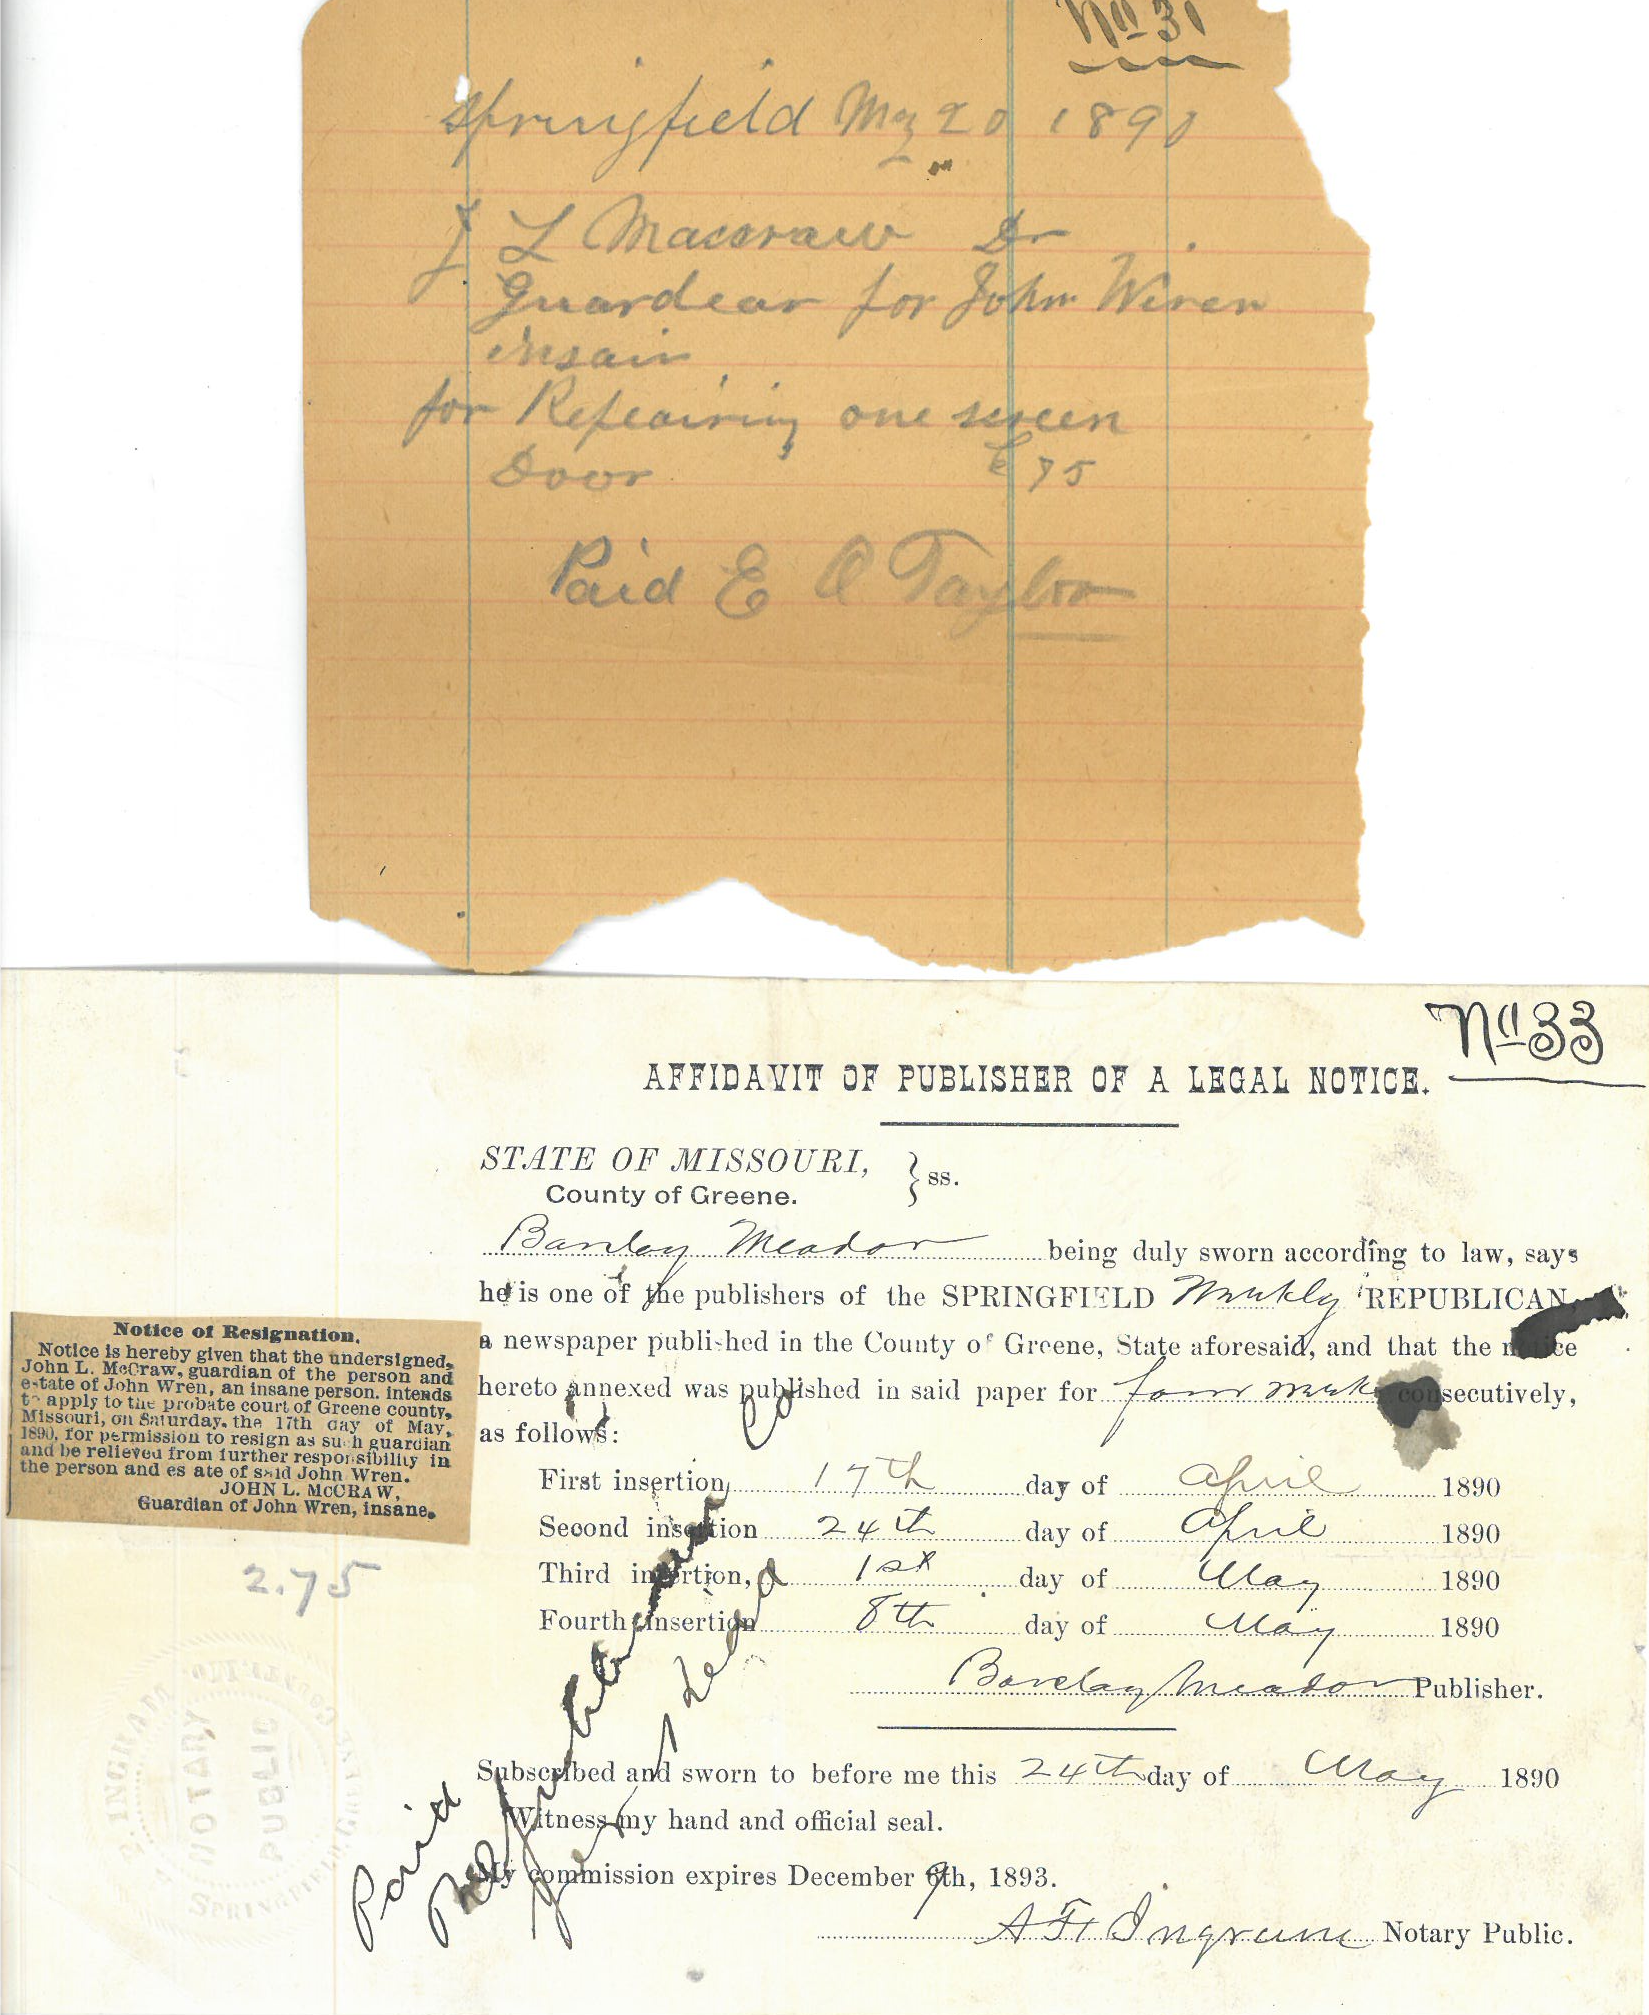 No 31
Springfield May 20 1890
J L Maccraw Dr
Guardear for John Wiren
insain
for Repairing one screen
Door 75
Paid E O Taylor
No 33
AFFIDAVIT OF PUBLISHER OF A LEGAL NOTICE.
STATE OF MISSOURI, } ss.
County of Greene.
Barclay Meador being duly sworn according to law, says
he is one of the publishers of the SPRINGFIELD Weekly REPUBLICAN,
a newspaper published in the County of Greene, State aforesaid, and that the notice
hereto annexed was published in said paper for four weeks consecutively,
as follows:
First insertion, 17th day of April 1890
Second insertion 24th day of April 1890
Third insertion, 1st day of May 1890
Fourth insertion 8th day of May 1890
Barclay Meador Publisher.
Subscribed and sworn to before me this 24th day of May 1890
Witness my hand and official seal.
My commission expires December 9th, 1893.
A F Ingram Notary Public.
Notice of Resignation.
Notice is hereby given that the undersigned,
John L. McCraw, guardian of the person and
estate of John Wren, an insane person, intends
to apply to the probate court of Greene county,
Missouri, on Saturday, the 17th day of May,
1890, for permission to resign as such guardian
and be relieved from further responsibility in
the person and estate of said John Wren.
JOHN L. McCRAW,
Guardian of John Wren, insane.
2.75
Paid
Republican
Co
NOTARY
PUBLIC